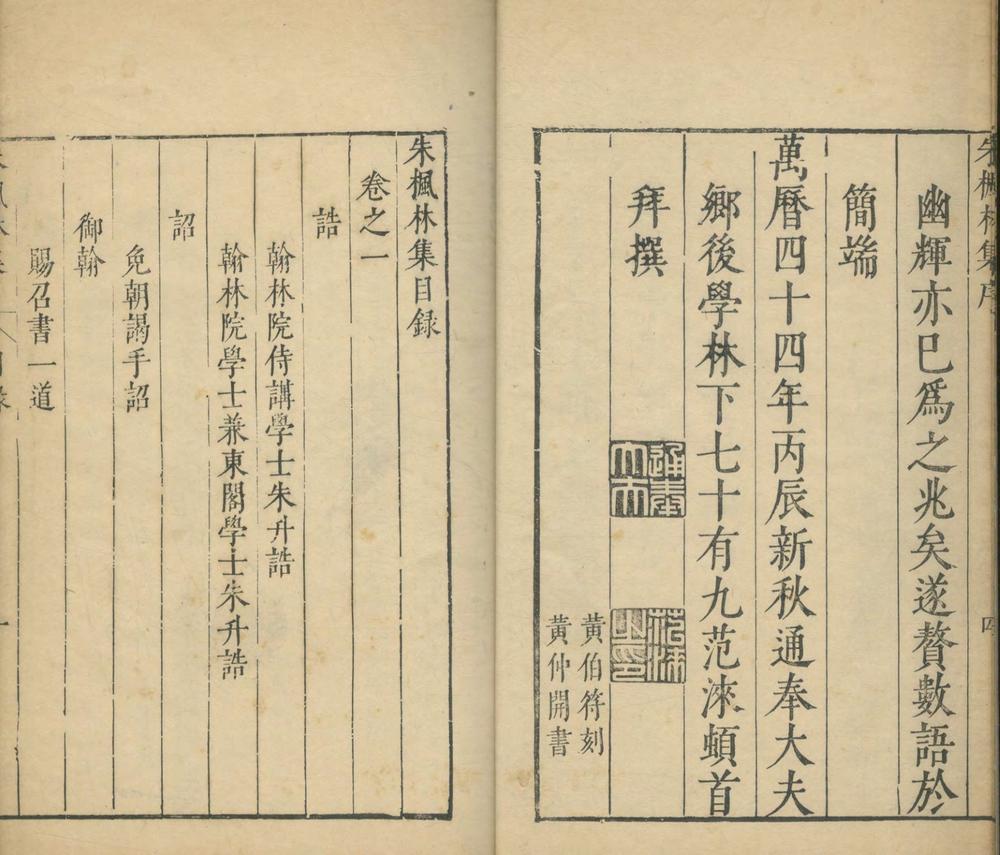 朱楓林集序
四
幽輝亦巳爲之兆矣遂贅數語於
簡端
萬曆四十四年丙辰新秋通奉大夫
鄉後學林下七十有九范淶頓首
拜撰
通奉
大夫
范淶
之印
黃伯符刻
黃仲開書
朱楓林集目録
卷之一
誥
翰林院侍講學士朱升誥
翰林院學士兼東閣學士朱升誥
詔
免朝謁手詔
御翰
賜召書一道